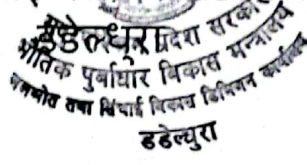 डडेल्धुरा
प्रदेश सरकार
भौतिक पुर्वाधार विकास मन्त्रालय
जलस्रोत तथा सिंचाई विकास डिभिजन कार्यालय
डडेल्धुरा